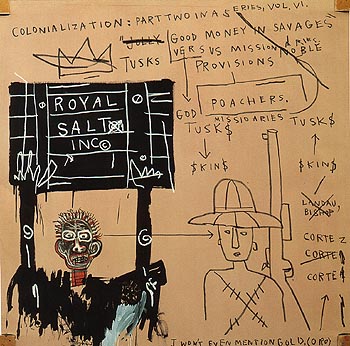 COLONIALIZATION: PART TWO IN A SERIES, VOL. VI.
"JOLLY GOOD MONEY IN SAVAGES"
VERSUS MISSION
NOBLE
TUSKS
PROVISIONS
POACHERS.
MISSIONARIES
GOD
TUSK$
TUSK$
ROYAL
SALT
INC©
$KIN$
$KIN$
LANDAU,
CORTEZ
CORTEZ
CORTEZ
I WON'T EVEN MENTION GOLD, (ORO)